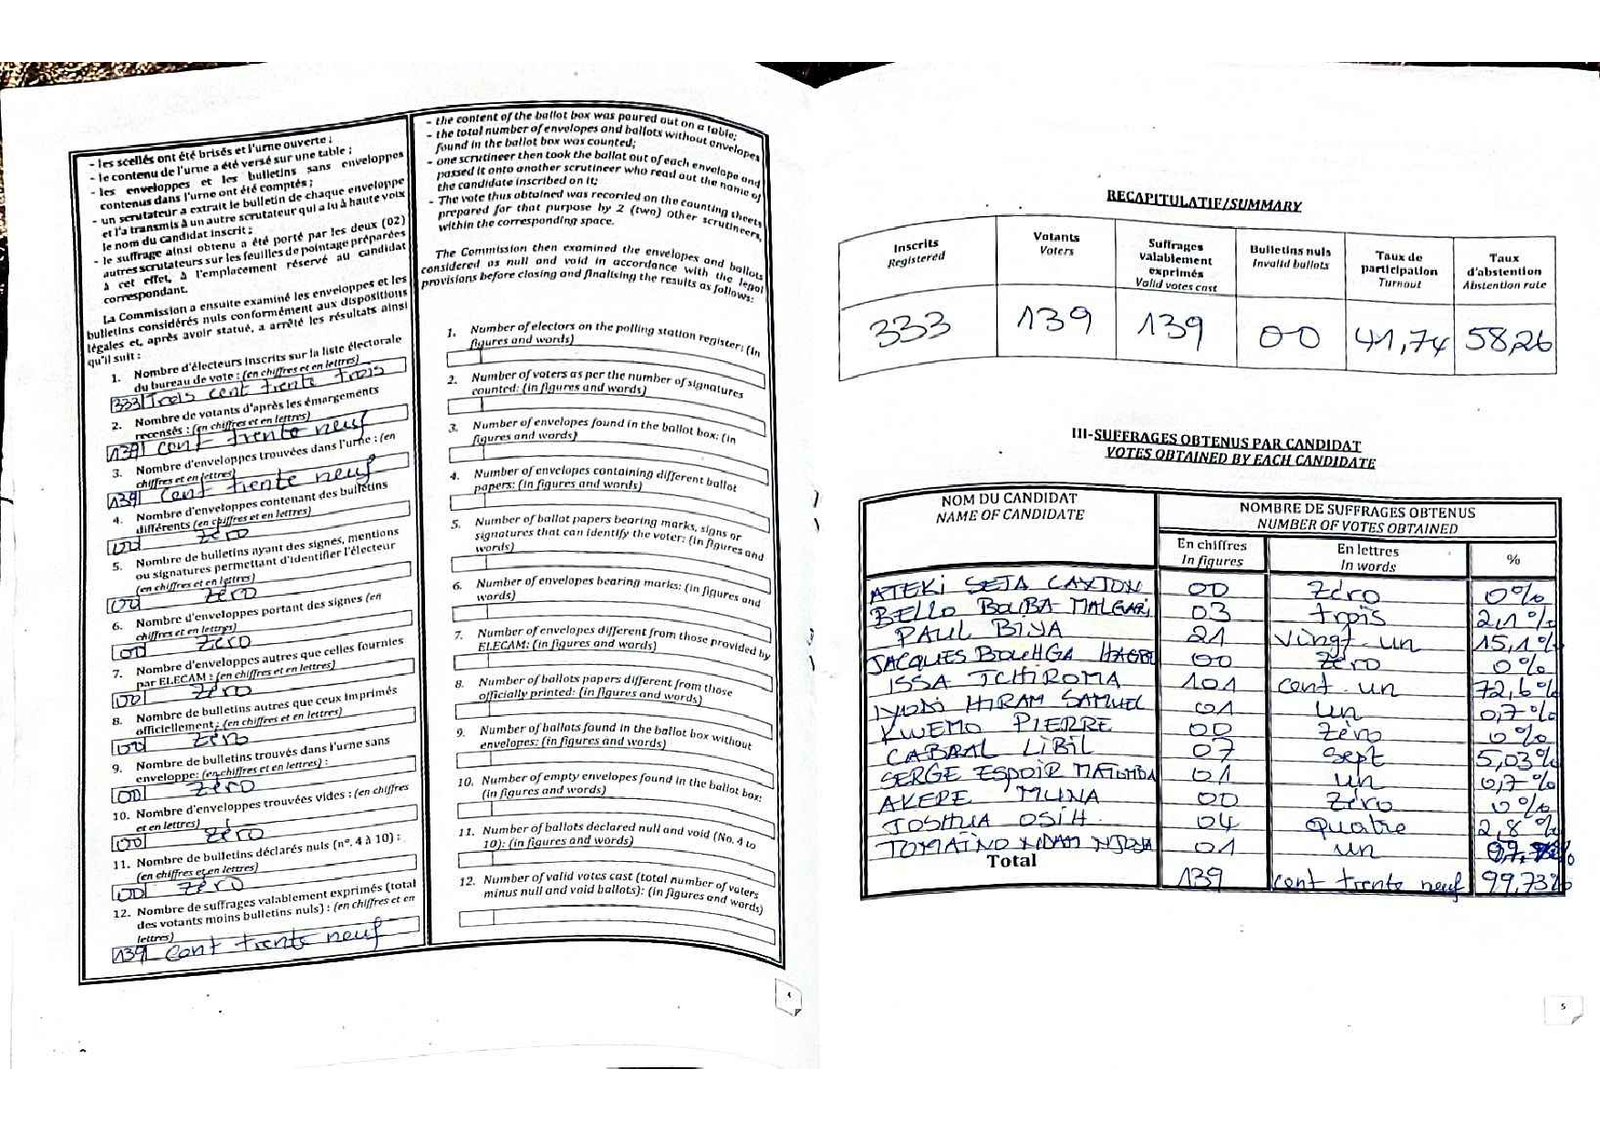 - les scellés ont été brisés et l'urne ouverte ;
- le contenu de l'urne a été versé sur une table ;
- les enveloppes et les bulletins sans enveloppes
contenus dans l'urne ont été comptés ;
- un scrutateur a extrait le bulletin de chaque enveloppe
et l'a transmis à un autre scrutateur qui a lu à haute voix
le nom du candidat inscrit ;
- le suffrage ainsi obtenu a été porté par les deux (02)
autres scrutateurs sur les feuilles de pointage préparées
à cet effet, à l'emplacement réservé au candidat
correspondant.
La Commission a ensuite examiné les enveloppes et les
bulletins considérés nuls conformément aux dispositions
légales et, après avoir statué, a arrêté les résultats ainsi
qu'il suit :
1. Nombre d'électeurs inscrits sur la liste électorale
du bureau de vote : (en chiffres et en lettres)
333 Trois cent trente trois
2. Nombre de votants d'après les émargements
recensés : (en chiffres et en lettres)
139 cent trente neuf
3. Nombre d'enveloppes trouvées dans l'urne : (en
chiffres et en lettres)
139 cent trente neuf
4. Nombre d'enveloppes contenant des bulletins
différents (en chiffres et en lettres)
00 zéro
5. Nombre de bulletins ayant des signes, mentions
ou signatures permettant d'identifier l'électeur
(en chiffres et en lettres)
00 zéro
6. Nombre d'enveloppes portant des signes (en
chiffres et en lettres)
00 zéro
7. Nombre d'enveloppes autres que celles fournies
par ELECAM : (en chiffres et en lettres)
00 zéro
8. Nombre de bulletins autres que ceux imprimés
officiellement : (en chiffres et en lettres)
00 zéro
9. Nombre de bulletins trouvés dans l'urne sans
enveloppe: (en chiffres et en lettres) :
00 zéro
10. Nombre d'enveloppes trouvées vides : (en chiffres
et en lettres)
00 zéro
11. Nombre de bulletins déclarés nuls (n°. 4 à 10) :
(en chiffres et en lettres)
00 zéro
12. Nombre de suffrages valablement exprimés (total
des votants moins bulletins nuls) : (en chiffres et en
lettres)
139 cent trente neuf
- the content of the ballot box was poured out on a table;
- the total number of envelopes and ballots without envelopes
found in the ballot box was counted;
- one scrutineer then took the ballot out of each envelope and
passed it onto another scrutineer who read out the name of
the candidate inscribed on it;
- The vote thus obtained was recorded on the counting sheets
prepared for that purpose by 2 (two) other scrutineers,
within the corresponding space.
The Commission then examined the envelopes and ballots
considered as null and void in accordance with the legal
provisions before closing and finalising the results as follows:
1. Number of electors on the polling station register: (in
figures and words)
2. Number of voters as per the number of signatures
counted: (in figures and words)
3. Number of envelopes found in the ballot box: (in
figures and words)
4. Number of envelopes containing different ballot
papers: (in figures and words)
5. Number of ballot papers bearing marks, signs or
signatures that can identify the voter: (in figures and
words)
6. Number of envelopes bearing marks: (in figures and
words)
7. Number of envelopes different from those provided by
ELECAM: (in figures and words)
8. Number of ballots papers different from those
officially printed: (in figures and words)
9. Number of ballots found in the ballot box without
envelopes: (in figures and words)
10. Number of empty envelopes found in the ballot box:
(in figures and words)
11. Number of ballots declared null and void (No. 4 to
10): (in figures and words)
12. Number of valid votes cast (total number of voters
minus null and void ballots): (in figures and words)
4
RECAPITULATIF/SUMMARY
Inscrits Registered Votants Voters Suffrages valablement exprimés Valid votes cast Bulletins nuls Invalid ballots Taux de participation Turnout Taux d'abstention Abstention rate
333 139 139 00 41,74 58,26
III-SUFFRAGES OBTENUS PAR CANDIDAT
VOTES OBTAINED BY EACH CANDIDATE
NOM DU CANDIDAT
NAME OF CANDIDATE
NOMBRE DE SUFFRAGES OBTENUS
NUMBER OF VOTES OBTAINED
En chiffres In figures En lettres In words %
ATEKI SETA CAXTON 00 Zéro 0%
BELLO BOUBA MALGARI 03 trois 2,1%
PAUL BIYA 21 vingt un 15,1%
JACQUES BOUHGA HAGBE 00 zéro 0%
ISSA TCHIROMA 101 cent un 72,6%
IYODI HIRAM SAMUEL 01 un 0,7%
KWEMO PIERRE 00 zéro 0%
CABRAL LIBIL 07 sept 5,03%
SERGE ESPOIR MATOMBA 01 un 0,7%
AKERE MUNA 00 zéro 0%
JOSHUA OSIH. 04 quatre 2,8%
TOMAINO NDAM NJOYA 01 un
Total 139 cent trente neuf 99,73%
5